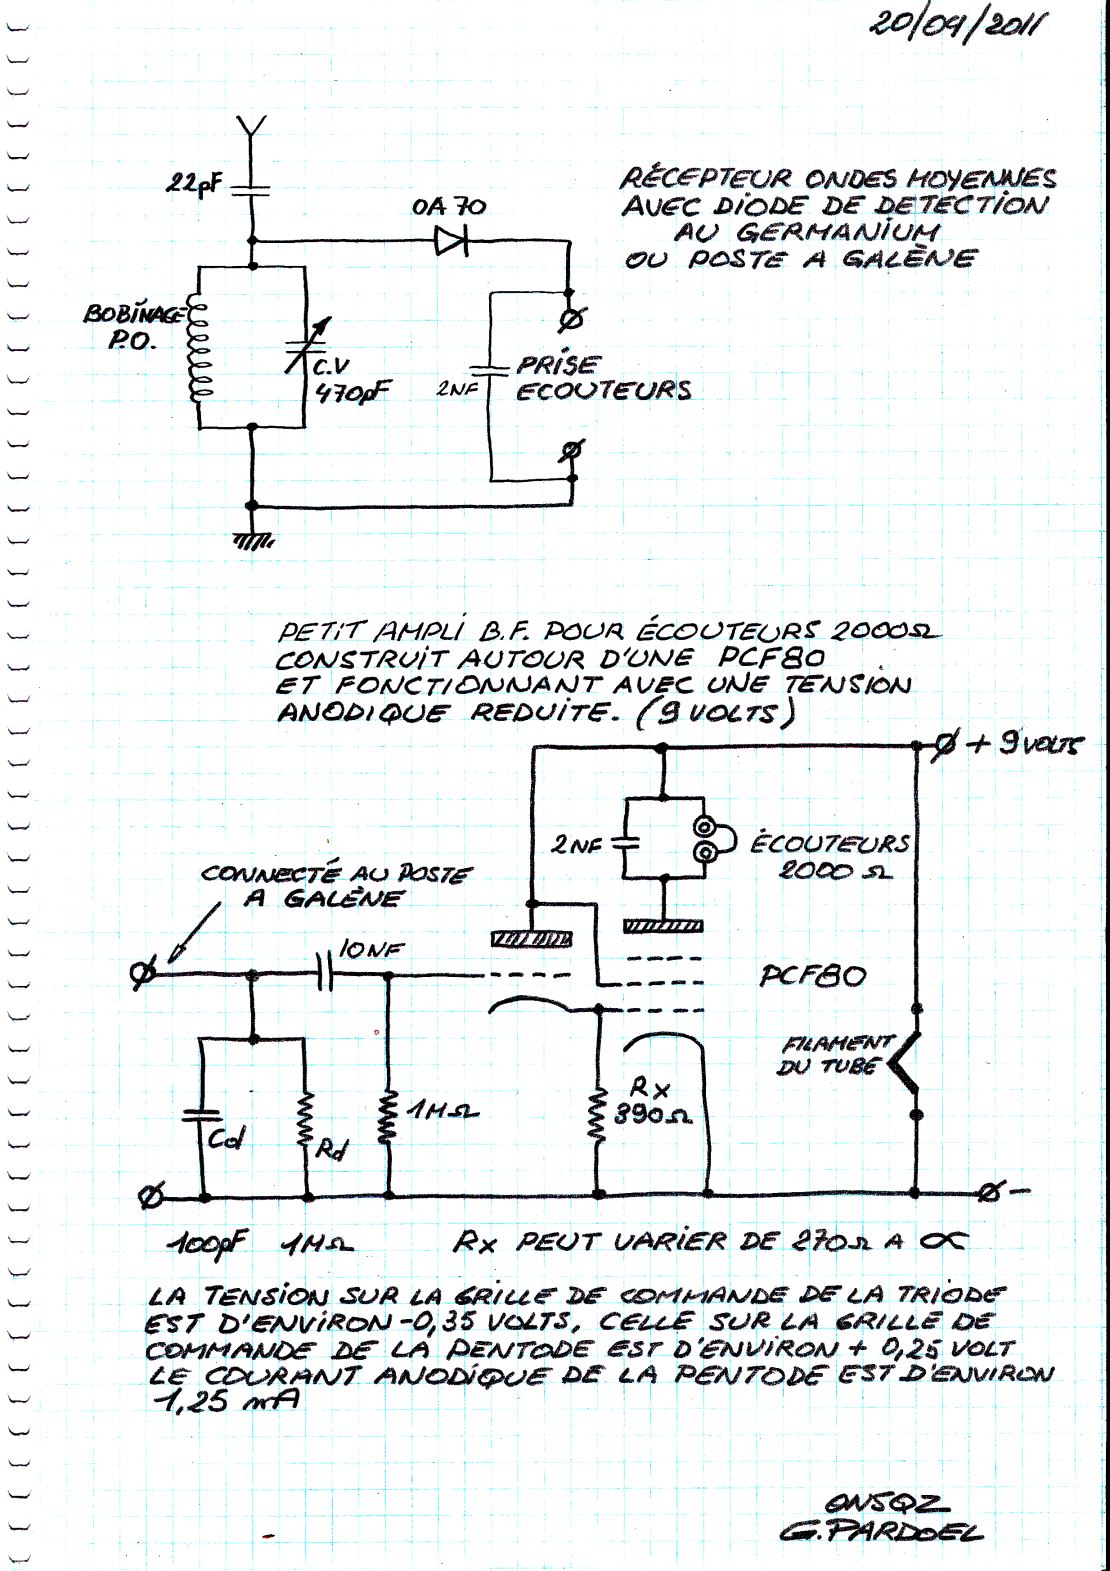 20/09/2011
22pF
OA70
RÉCEPTEUR ONDES MOYENNES
AVEC DIODE DE DETECTION
AU GERMANIUM
OU POSTE A GALÈNE
BOBINAGE
P.O.
C.V
470pF
2NF
PRISE
ECOUTEURS
PETIT AMPLI B.F. POUR ÉCOUTEURS 2000Ω
CONSTRUIT AUTOUR D'UNE PCF80
ET FONCTIONNANT AVEC UNE TENSION
ANODIQUE REDUITE. (9 VOLTS)
+ 9 VOLTS
2NF
ÉCOUTEURS
2000 Ω
CONNECTÉ AU POSTE
A GALÈNE
10NF
PCF80
FILAMENT
DU TUBE
Rx
390Ω
1MΩ
Cd
Rd
-
100pF 1MΩ
Rx PEUT VARIER DE 270Ω A ∝
LA TENSION SUR LA GRILLE DE COMMANDE DE LA TRIODE
EST D'ENVIRON -0,35 VOLTS, CELLE SUR LA GRILLE DE
COMMANDE DE LA PENTODE EST D'ENVIRON + 0,25 VOLT
LE COURANT ANODIQUE DE LA PENTODE EST D'ENVIRON
1,25 mA
ON5QZ
G.PARDOEL